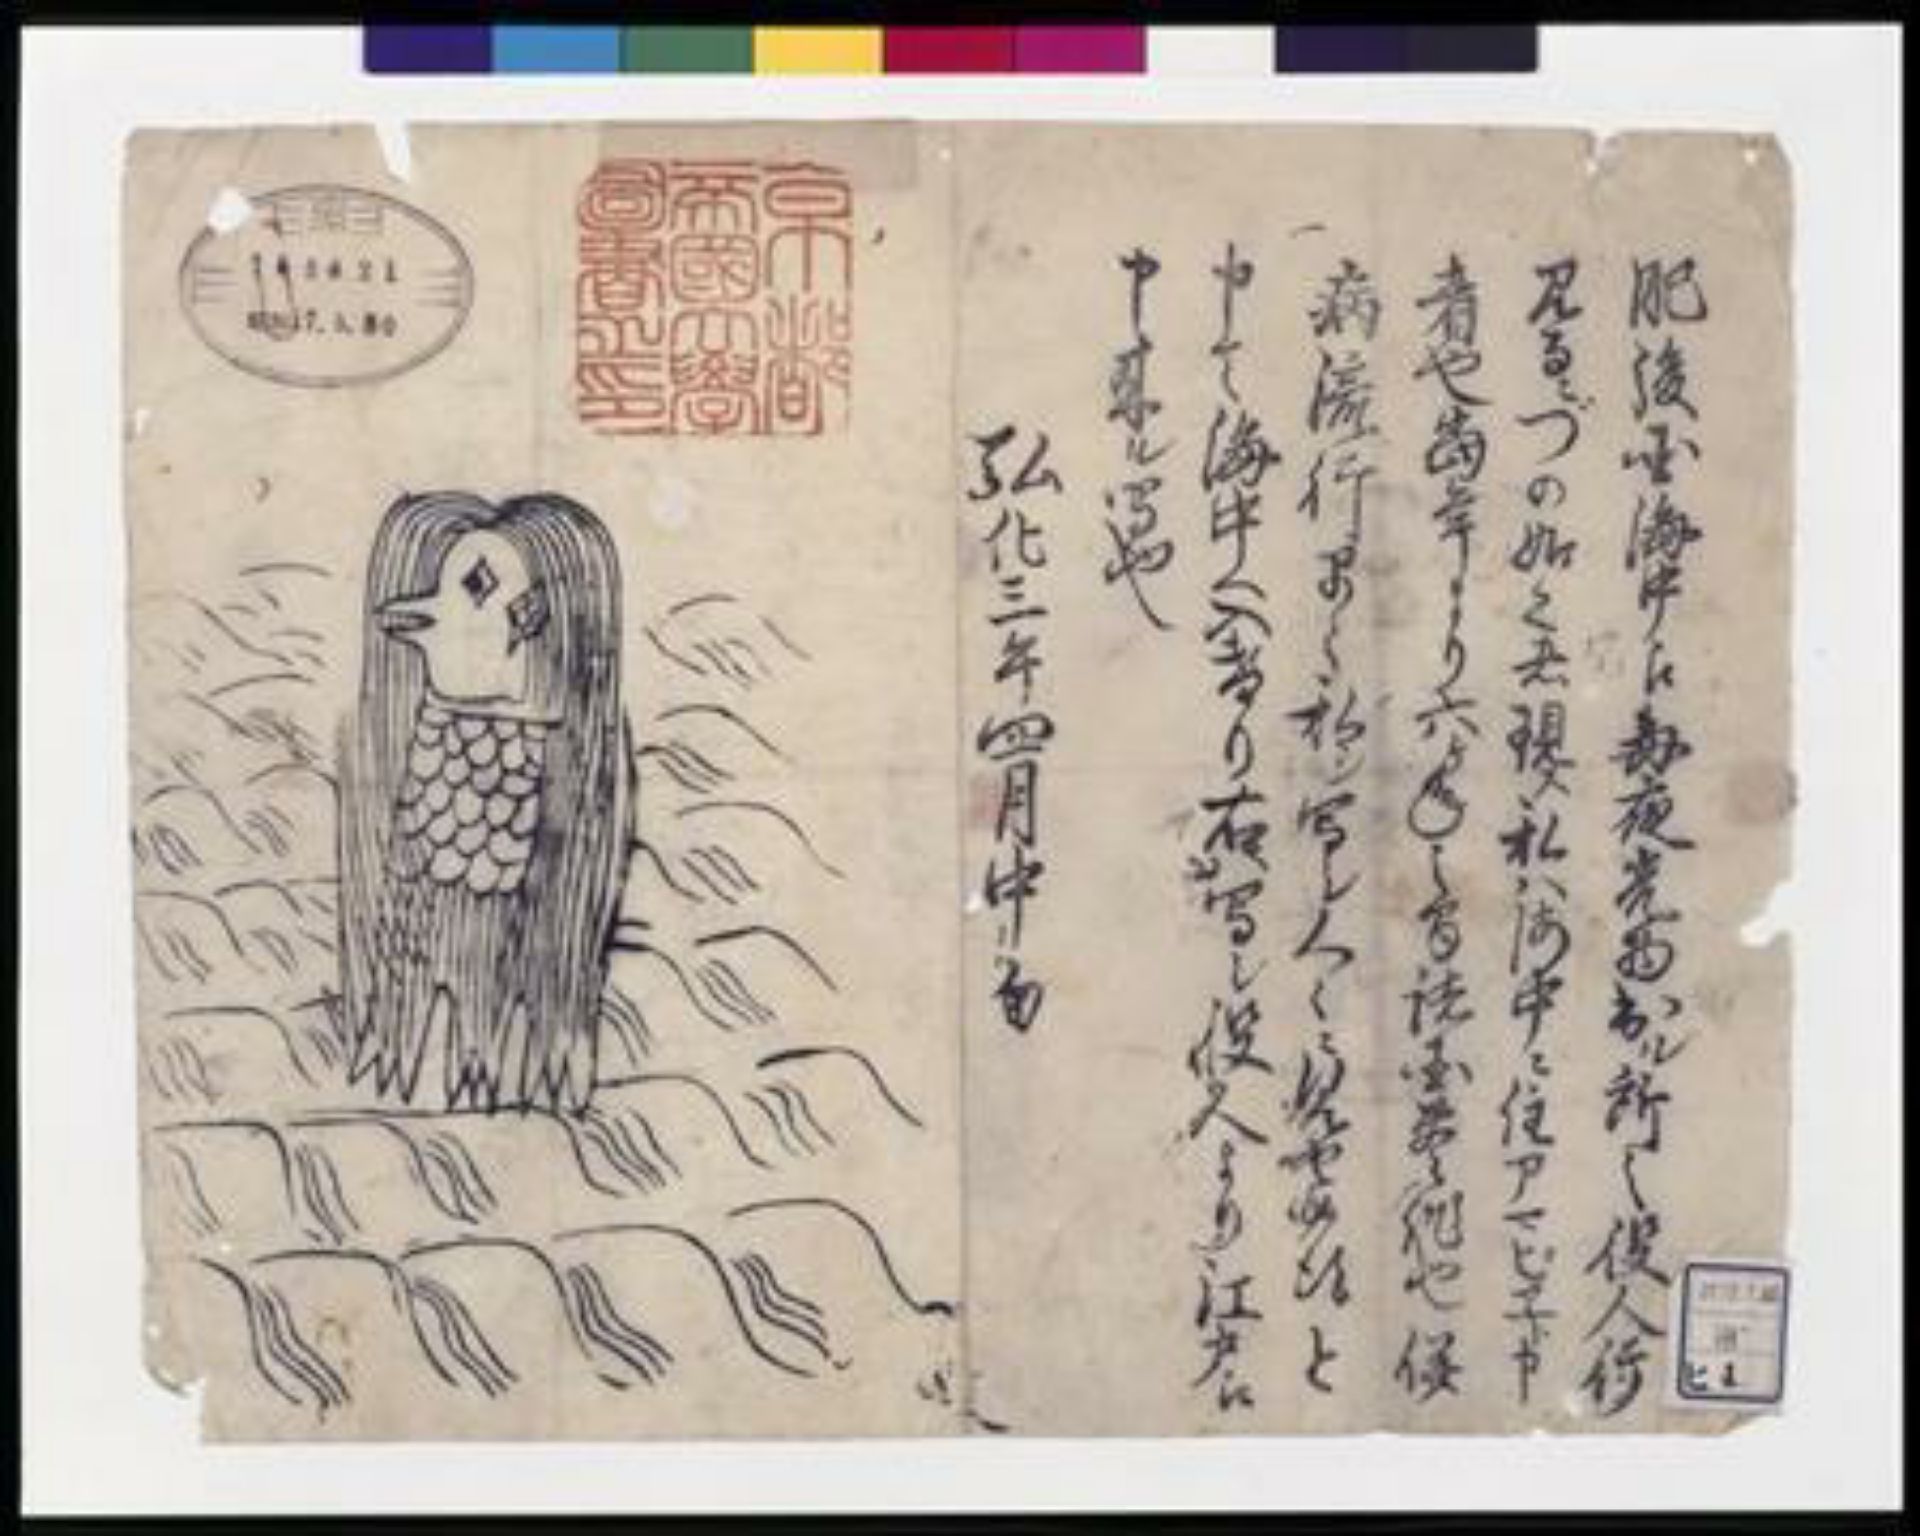 肥後国海中江毎夜光物出ル所之役人行
見るニづの如之者現ス私ハ海中ニ住アマビヱト申
者也当年より六ケ年之間諸国豊作也併
病流行早々私シ写シ人々ニ見セ候得と
申て海中へ入けり右ハ写シ役人より江戸江
申来ル写也
弘化三年四月中旬
京都
帝國大學
圖書之印